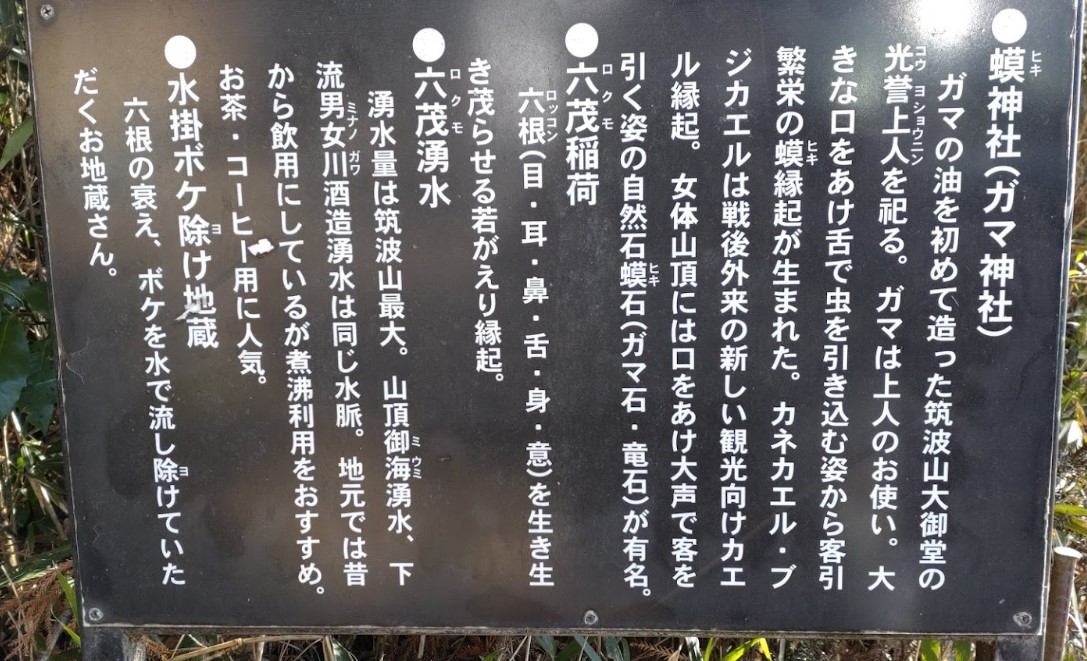 ●蟆神社(ガマ神社)
ガマの油を初めて造った筑波山大御堂の
光誉上人を祀る。ガマは上人のお使い。大
きな口をあけ舌で虫を引き込む姿から客引
繁栄の蟆縁起が生まれた。カネカエル・ブ
ジカエルは戦後外来の新しい観光向けカエ
ル縁起。女体山頂には口をあけ大声で客を
引く姿の自然石蟆石(ガマ石・竜石)が有名。
●六茂稲荷
六根(目・耳・鼻・舌・身・意)を生き生
き茂らせる若がえり縁起。
●六茂湧水
湧水量は筑波山最大。山頂御海湧水、下
流男女川酒造湧水は同じ水脈。地元では昔
から飲用にしているが煮沸利用をおすすめ。
お茶・コーヒー用に人気。
●水掛ボケ除け地蔵
六根の衰え、ボケを水で流し除けていた
だくお地蔵さん。